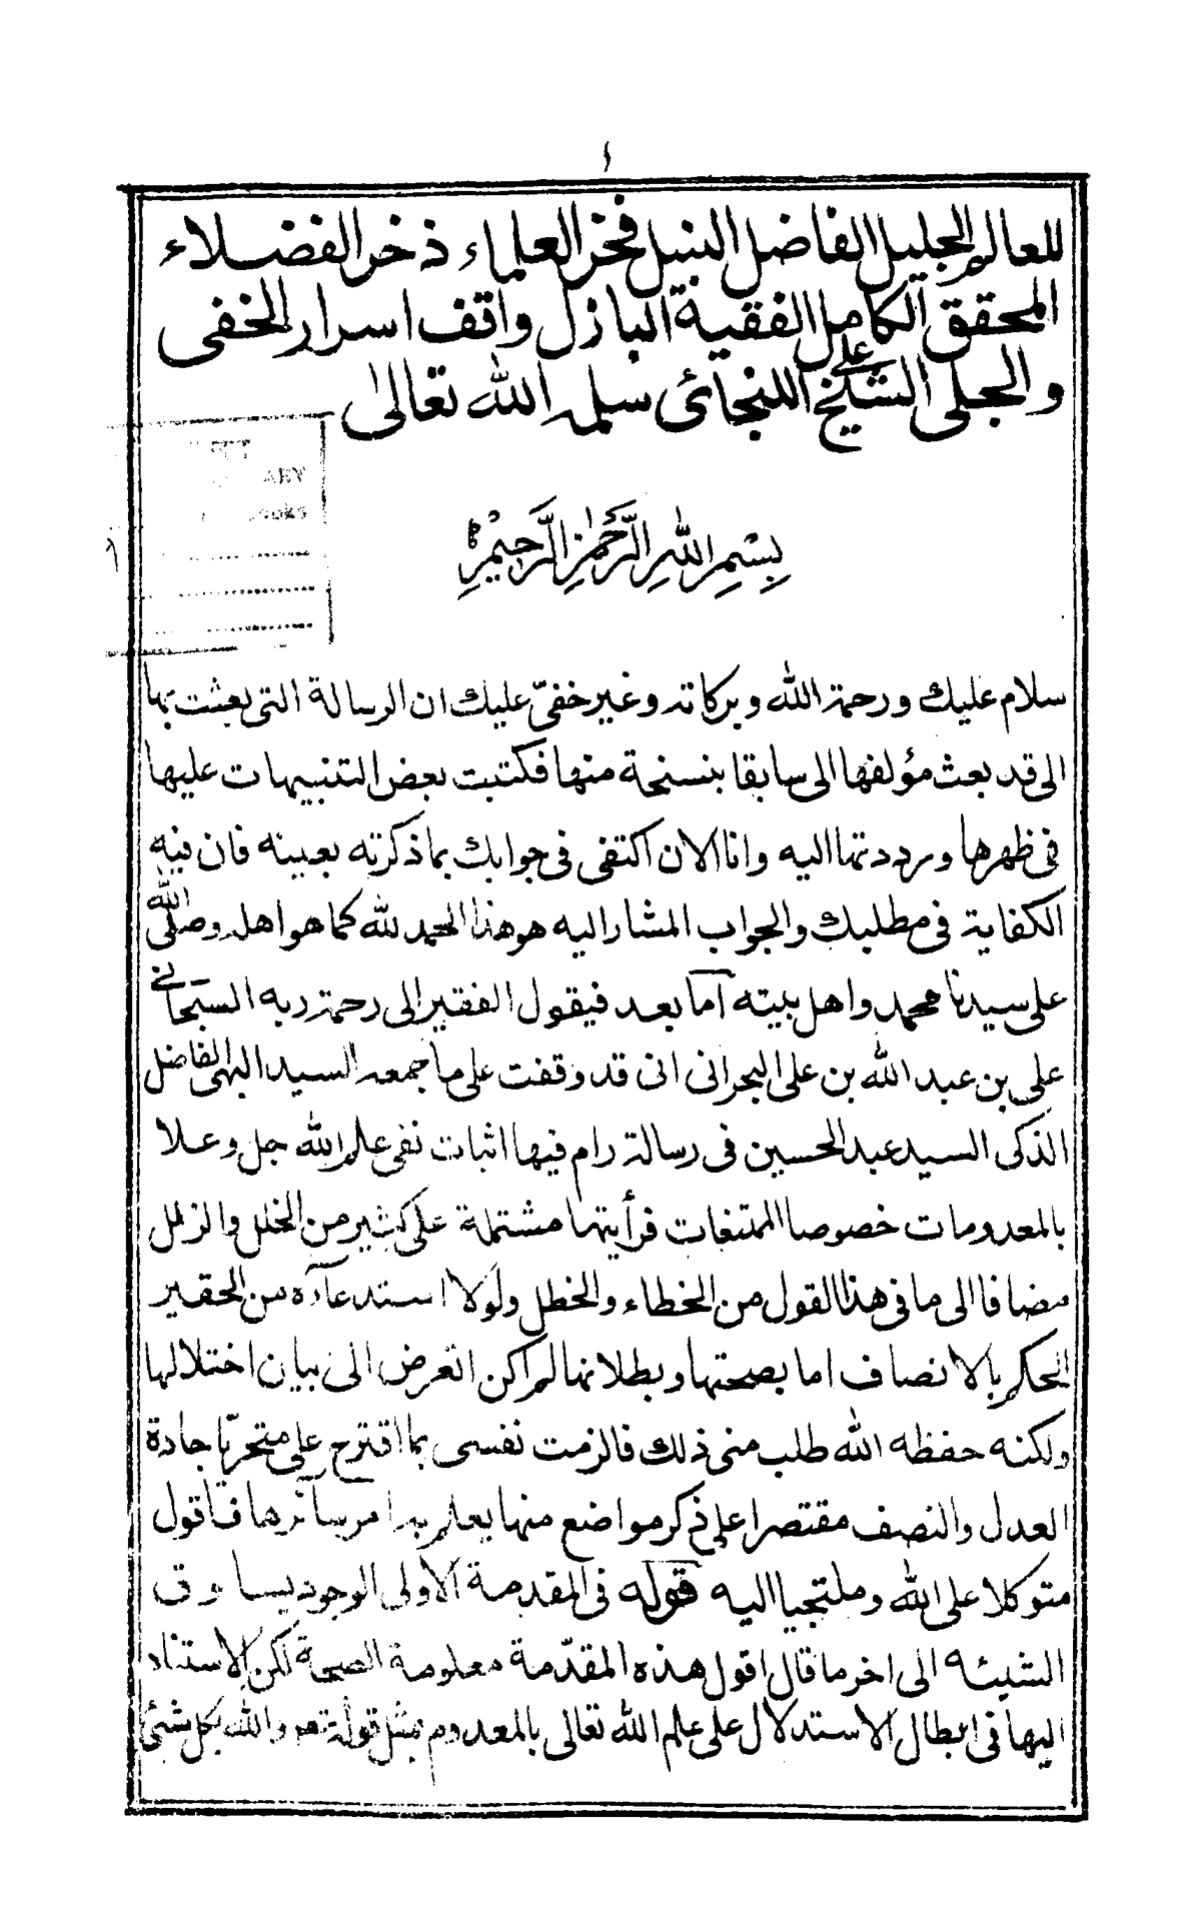 ١
للعالم الجليل الفاضل النبيل فخر العلماء ذخر الفضلاء
المحقق الكامل الفقيه البازل واقف اسرار الخفى
والجلى الشيخ على اللنجائى سلمه الله تعالى
بِسْمِ اللهِ الرَّحْمٰنِ الرَّحِيْمِ
سلام عليك ورحمة الله وبركاته وغير خفىّ عليك ان الرسالة التى بعثت بها
الى قد بعث مؤلفها الى سابقا بنسخة منها فكتبت بعض التنبيهات عليها
فى ظهرها ورددتها اليه وانا الان اكتفى فى جوابك بما ذكرته بعينه فان فيه
الكفاية فى مطلبك والجواب المشار اليه هو هذا الحمد لله كما هو اهله وصلى الله
على سيدنا محمد واهل بيته اما بعد فيقول الفقير الى رحمة ربه السبحانى
على بن عبد الله بن على البحرانى انى قد وقفت على ما جمعه السيد البهى الفاضل
الذكى السيد عبد الحسين فى رسالة رام فيها اثبات نفى علم الله جل وعلا
بالمعدومات خصوصا الممتنعات فرأيتها مشتملة على كثير من الخلل والزلل
مضافا الى ما فى هذا القول من الخطاء والخطل ولولا استدعآءه من الحقير
الحكم بالانصاف اما بصحتها وبطلانها لم اكن اتعرض الى بيان اختلالها
ولكنه حفظه الله طلب منى ذلك فالزمت نفسى بما اقترح على متحريّا جادة
العدل والنصف مقتصرا على ذكر مواضع منها يعلم بها امر سآئرها فاقول
متوكلا على الله وملتجيا اليه قوله فى المقدمة الاولى الوجود يساوق
الشيئه الى اخر ما قال اقول هذه المقدّمة معلومة الصحة لكن الاستناد
اليها فى ابطال الاستدلال على علم الله تعالى بالمعدوم بمثل قوله تعم والله بكل شئ